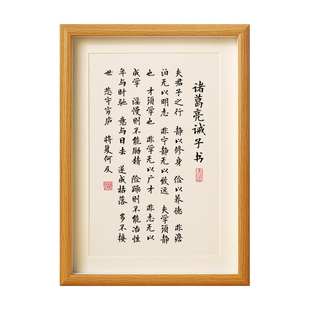 诸葛亮诫子书
夫君子之行 静以修身 俭以养德 非澹
泊无以明志 非宁静无以致远 夫学须静
也 才须学也 非学无以广才 非志无以
成学 淫慢则不能励精 险躁则不能冶性
年与时驰 意与日去 遂成枯落 多不接
世 悲守穷庐 将复何及